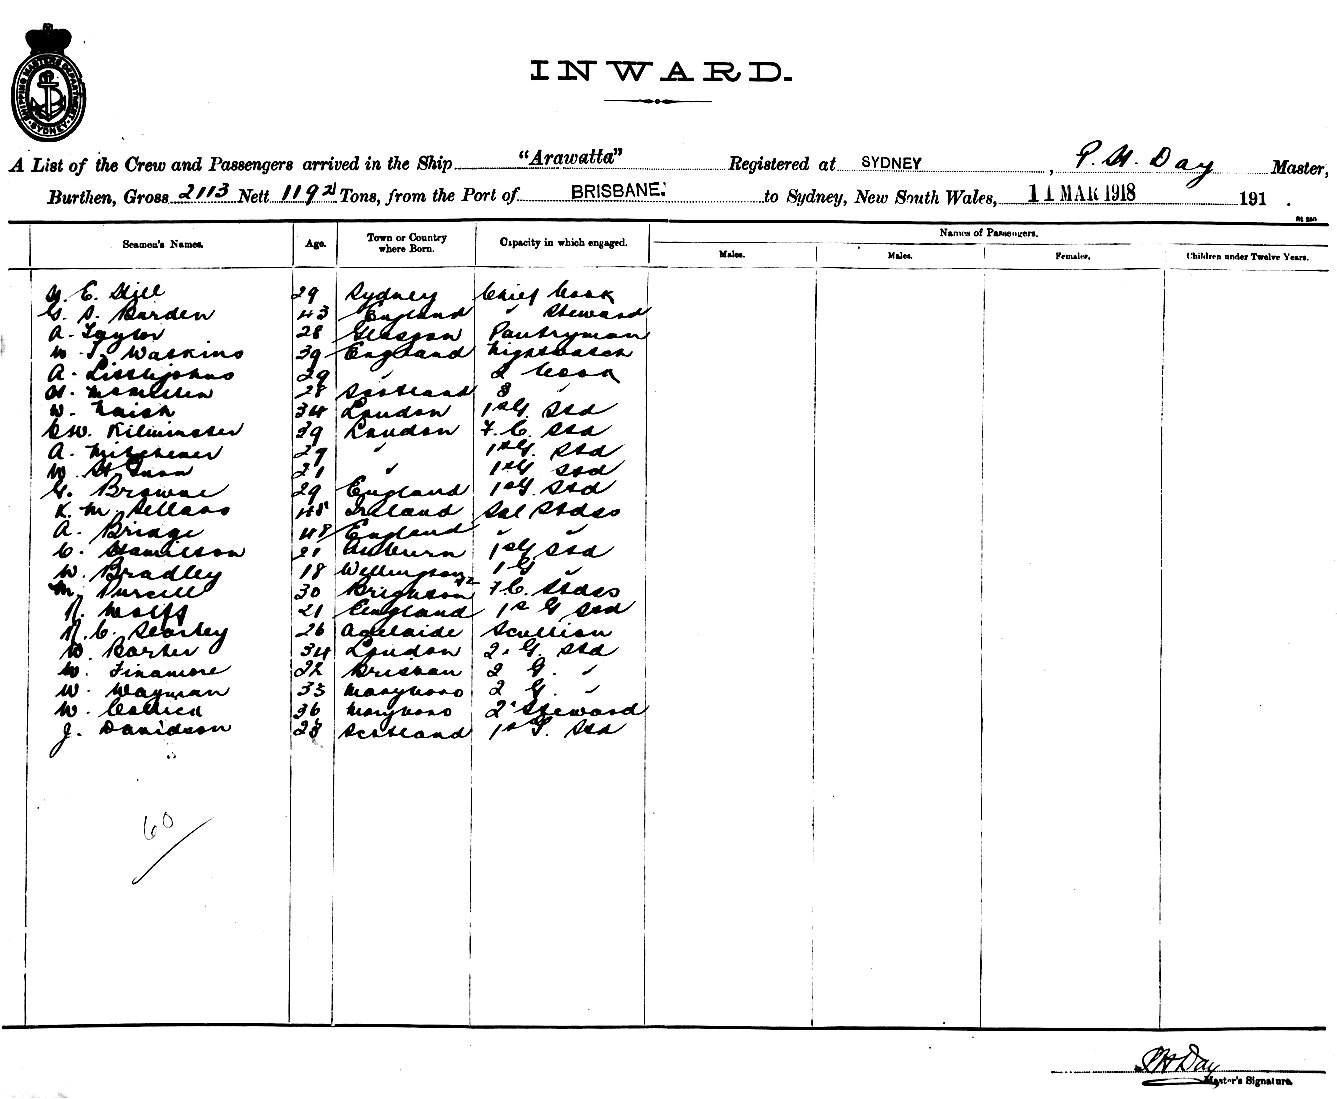 SHIPPING MASTERS DEPARTMENT
SYDNEY
INWARD.
A List of the Crew and Passengers arrived in the Ship "Arawatta" Registered at SYDNEY, P. H. Day Master,
Burthen, Gross 2113 Nett 1192 Tons, from the Port of BRISBANE. to Sydney, New South Wales, 11 MAR 1918 191 .
Seamen's Names. Age. Town or Country where Born. Capacity in which engaged. Names of Passengers.
Males. Males. Females. Children under Twelve Years.
E. Hill 29 Sydney Chief Cook
G. S. Barden 43 England " Steward
A. Taylor 28 Glasgow Pantryman
W. J. Watkins 39 England Nightwatch
A. Littlejohns 29 " 2 Cook
H. 28 Scotland 3 "
W. Naish 34 London 1st G. Std
C W. Kilminster 29 London F. C. Std
A. Mitchener 27 " 1st G. Std
W. 21 " 1st G Std
G. Browne 29 England 1st G. Std
K. M. Sellars 48 Ireland Sal Stdss
A. Bridge 48 England " "
C. Hamilson 21 Auburn 1st G Std
W. Bradley 18 Wellington NZ 1 G "
M. Purcell 30 Brighton F. C. Stdss
R. Wolff 21 England 1st G Std
R. C. Stortey 26 Adelaide Scullion
W. Barter 34 London 2. G. Std
W. Finamore 22 Brisban 2 G. "
W. Wayman 33 Maryboro 2 G. "
W. 36 Maryboro 2d Steward
J. Davidson 28 Scotland 1st S. Std
60
P H Day
Master's Signature.